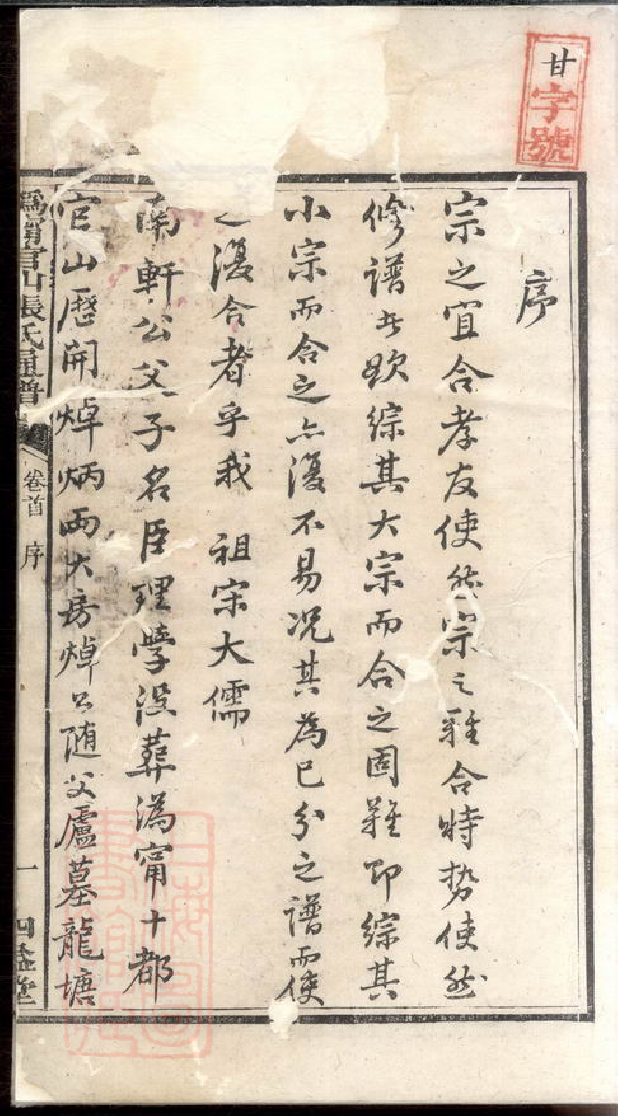 甘
字號
序
宗之宜合孝友使然宗之難合時勢使然
修譜者欲綜其大宗而合之固難即綜其
小宗而合之亦復不易況其為已分之譜而使
之復合者乎我 祖宗大儒
南軒公父子名臣理學沒葬溈甯十都
官山歷開焯炳兩大房焯公隨父廬墓龍塘
官山張氏通譜
卷首 序
一
四益堂
上海圖書館藏